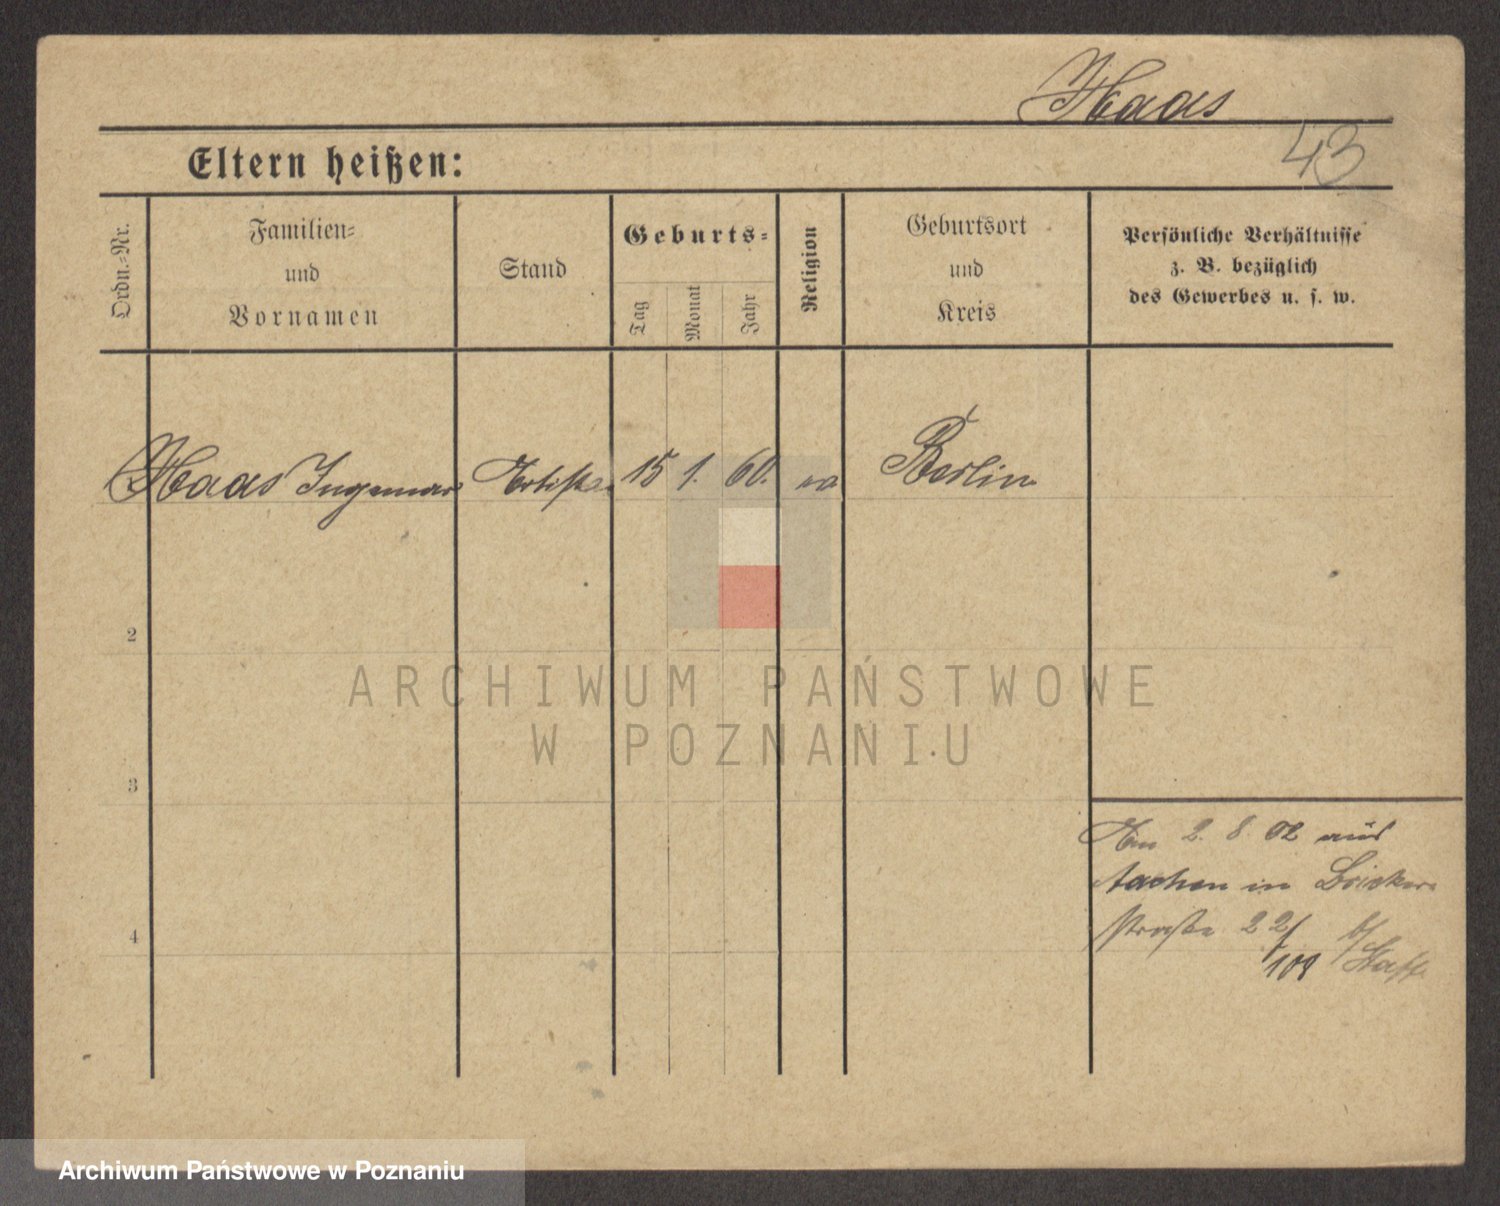 Haas
43
Eltern heißen:
Ordn.-Nr.
Familien-
und
Vornamen
Stand
Geburts-
Tag
Monat
Jahr
Religion
Geburtsort
und
Kreis
Persönliche Verhältnisse
z. B. bezüglich
des Gewerbes u. s. w.
Haas Ingemar Artist 15 1. 60. ev Berlin
2
3
4
Am 2. 8. 02 aus
Aachen in
straße 22/
109
ARCHIWUM PAŃSTWOWE
W POZNANIU
Archiwum Państwowe w Poznaniu